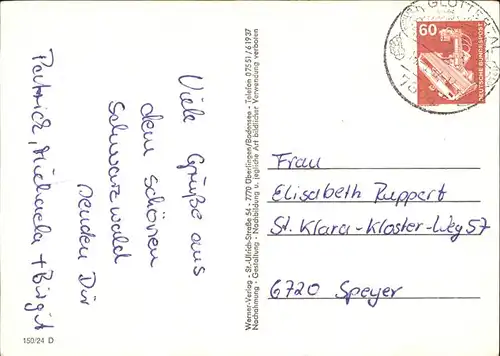 Viele Grüße aus
dem schönen
Schwarzwald
senden Dir
Patrick, Michaela + Birgit
150/24 D
Werner-Verlag - St.-Ulrich-Straße 54 - 7770 Überlingen/Bodensee - Telefon 07551/61937
Nachahmung - Gestaltung - Nachbildung u. jegliche Art bildlicher Verwendung verboten
GLOTTERTAL
60
DEUTSCHE BUNDESPOST
Frau
Elisabeth Ruppert
St. Klara-Kloster-Weg 57
6720 Speyer